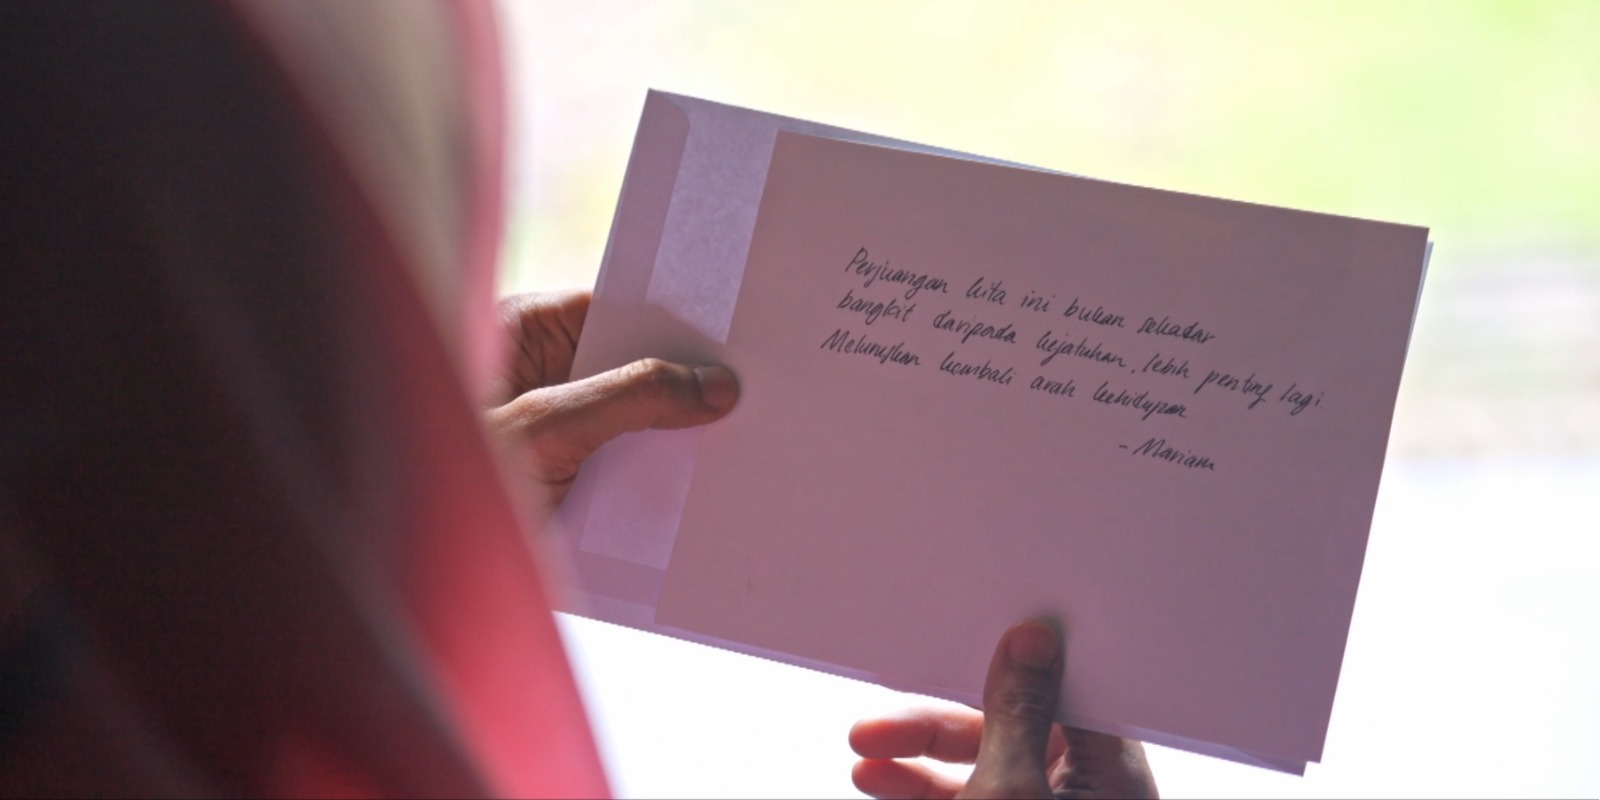 Perjuangan kita ini bukan sekadar
bangkit daripada kejatuhan, lebih penting lagi.
Meluruskan kembali arah kehidupan
- Mariam